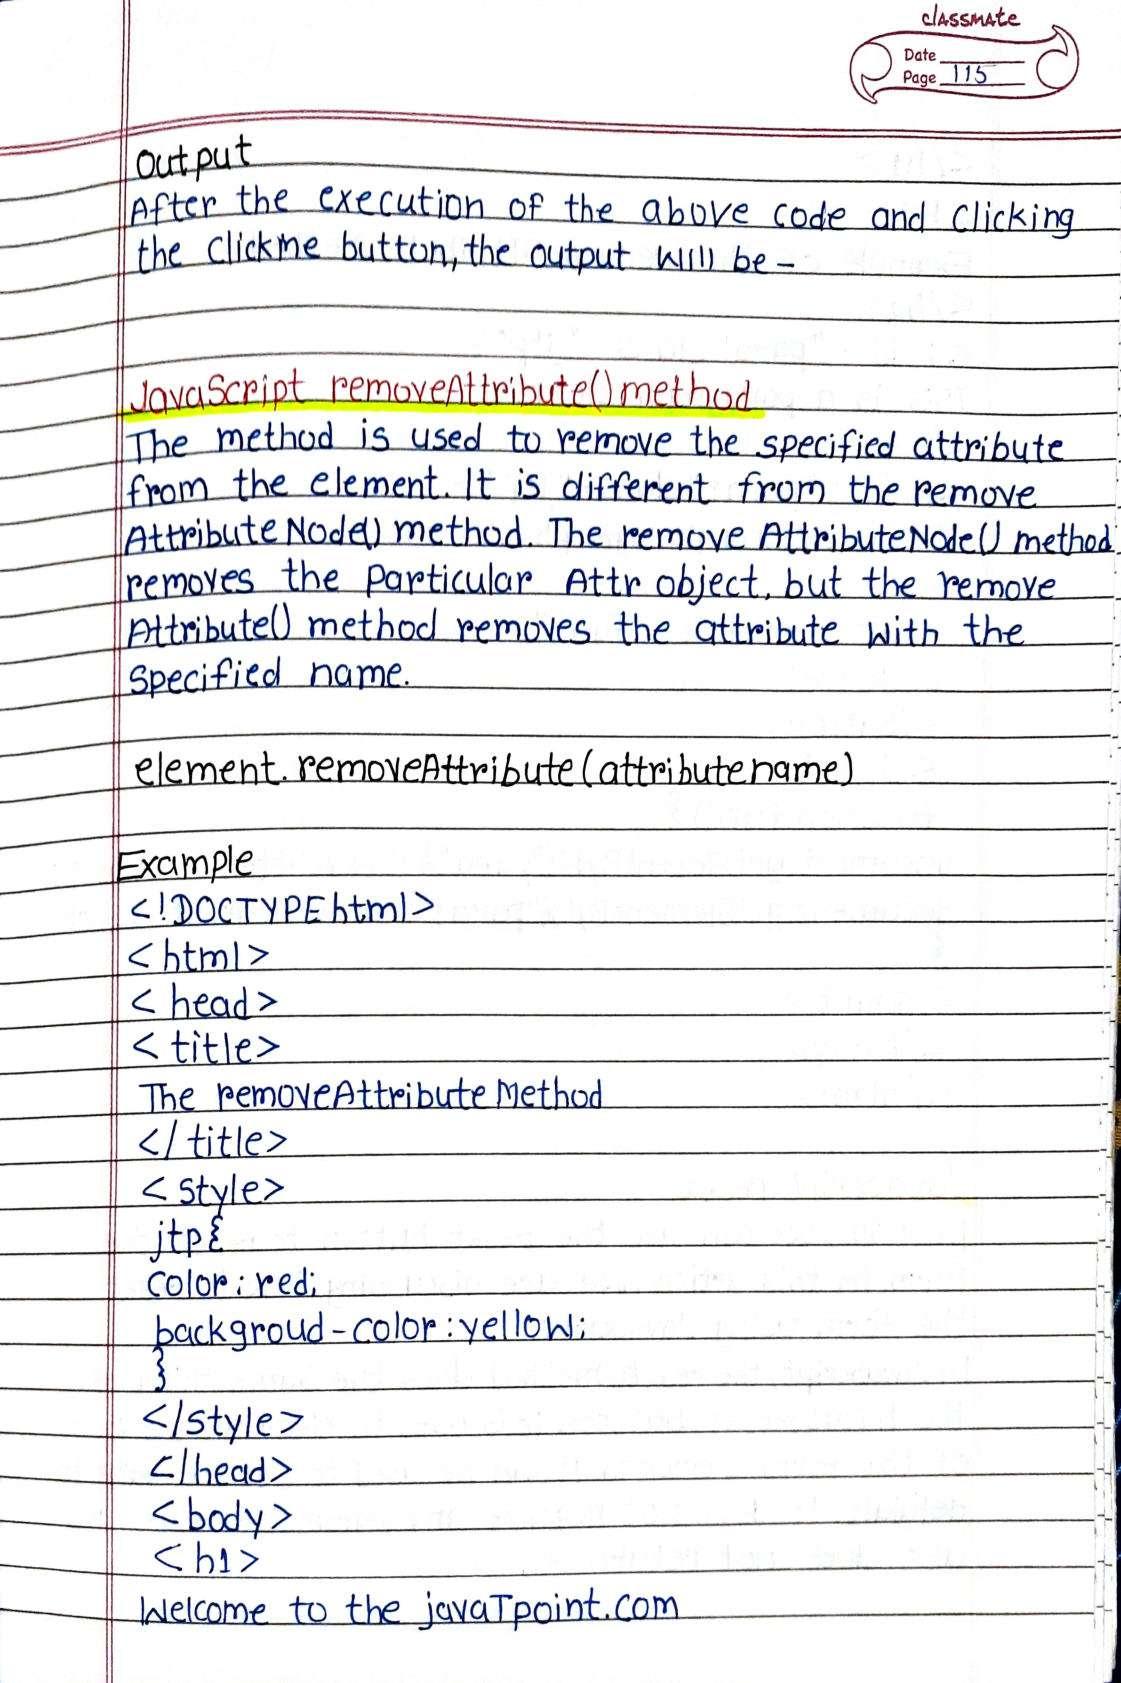 classmate
Date
Page 115
Output
After the execution of the above code and clicking
the clickme button, the output will be -
JavaScript removeAttribute() method
The method is used to remove the specified attribute
from the element. It is different from the remove
Attribute Node() method. The remove AttributeNode() method
removes the particular Attr object, but the remove
Attribute() method removes the attribute with the
specified name.
element.removeAttribute(attributename)
Example
<!DOCTYPE html>
<html>
<head>
<title>
The removeAttribute Method
</title>
<style>
jtp{
color: red;
backgroud-color:yellow;
}
</style>
</head>
<body>
<h1>
Welcome to the javaTpoint.com